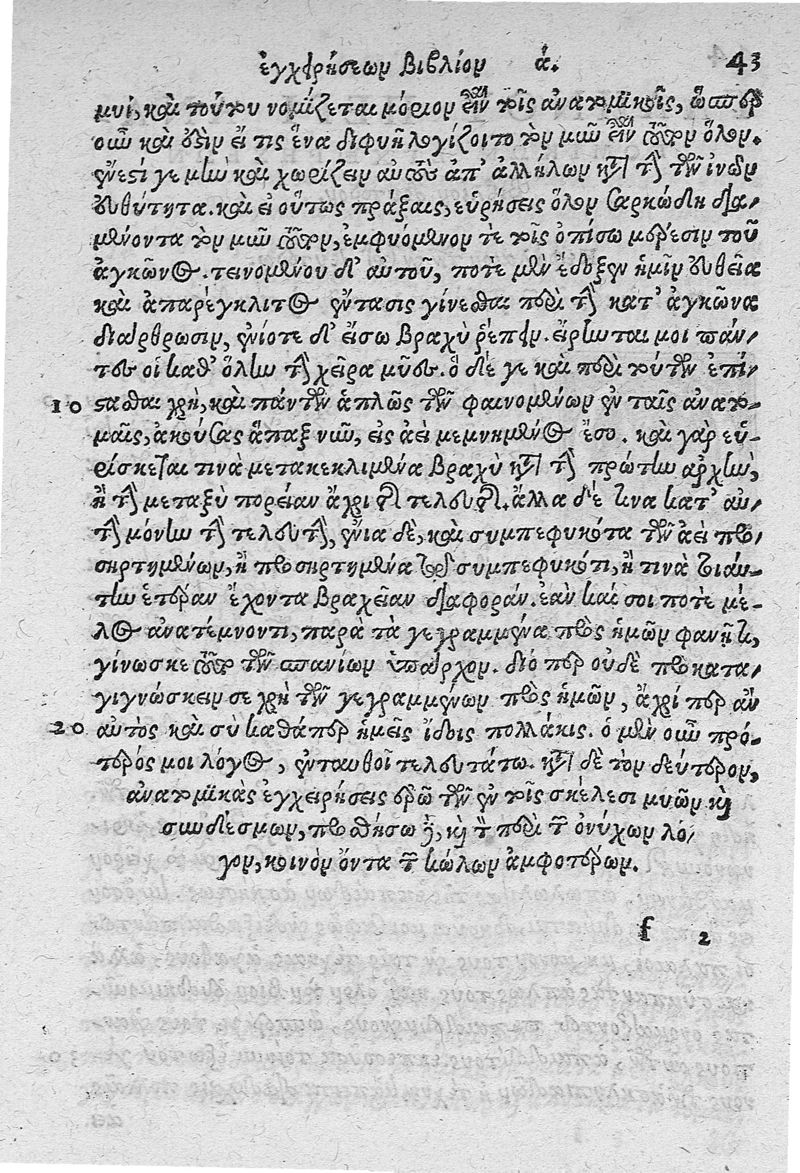 ἐγχειρήσεων βιβλίον ά. 43
μυὶ, καὶ τούτου νομίζεται μόριον εἶναι τοῖς ἀνατομικοῖς, ὥσπερ
οὖν καὶ οὐδὲν εἴ τις ἕνα διφυῆ λογίζοιτο τὸν μῦν εἶναι τοῦτον ὅλον.
ἔνεστί γε μὴν καὶ χωρίζειν αὐτοὺς ἀπ' ἀλλήλων κατὰ τὴν τῶν ἰνῶν
εὐθύτητα. καὶ εἰ οὕτως πράξαις, εὑρήσεις ὅλον σαρκώδη δια-
μένοντα τὸν μῦν τοῦτον, ἐμφυόμενον τε τοῖς ὀπίσω μέρεσιν τοῦ
ἀγκῶνος. τεινομένου δι' αὐτοῦ, ποτὲ μὲν ἔδοξεν ἡμῖν εὐθεῖα
καὶ ἀπαρέγκλιτος ἔντασις γίνεσθαι περὶ τὴν κατ' ἀγκῶνα
διάρθρωσιν, ἐνίοτε δι' εἴσω βραχὺ ῥέπειν. εἴρηνται μοι πάν-
τες οἱ καθ' ὅλην τὴν χεῖρα μῦες. ὃ δέ γε καὶ περὶ τούτων ἐπί-
10 στασθαι χρὴ, καὶ πάντων ἁπλῶς τῶν φαινομένων ἐν ταῖς ἀνατο-
μαῖς, ἀκούσας ἅπαξ νῦν, εἰς ἀεὶ μεμνημένος ἔσο. καὶ γὰρ εὑ-
ρίσκεται τινὰ μετακεκλιμένα βραχὺ κατὰ τὴν πρώτην ἀρχὴν,
ἢ τὴν μεταξὺ πορείαν ἄχρι τῆς τελευτῆς. ἄλλα δέ τινα κατ' αὐ-
τὴν μόνην τὴν τελευτὴν, ἔνια δὲ, καὶ συμπεφυκότα τῶν ἀεὶ προ-
σηρτημένων, ἢ προσηρτημένα τῶν συμπεφυκότι, ἤ τινὰ τοιαύ-
την ἑτέραν ἔχοντα βραχεῖαν διαφοράν. ἐὰν καί σοι ποτὲ μέ-
λος ἀνατέμνοντι, παρὰ τὰ γεγραμμένα πρὸς ἡμῶν φανῇ τι,
γίνωσκε τοῦτο τῶν σπανίων ὑπάρχον. διό περ οὐδὲ προκατα-
γιγνώσκειν σε χρὴ τῶν γεγραμμένων πρὸς ἡμῶν, ἄχρί περ ἂν
20 αὐτὸς καὶ σὺ καθάπερ ἡμεῖς ἴδοις πολλάκις. ὁ μὲν οὖν πρό-
τερός μοι λόγος, ἐνταυθοῖ τελευτάτω. κατὰ δὲ τὸν δεύτερον,
ἀνατομικὰς ἐγχειρήσεις ἐρῶ τῶν ἐν τοῖς σκέλεσι μυῶν καὶ
συνδέσμων, προσθήσω καὶ τὸν περὶ τῶν ὀνύχων λό-
γον, κοινὸν ὄντα τῶν κώλων ἀμφοτέρων.
f 2